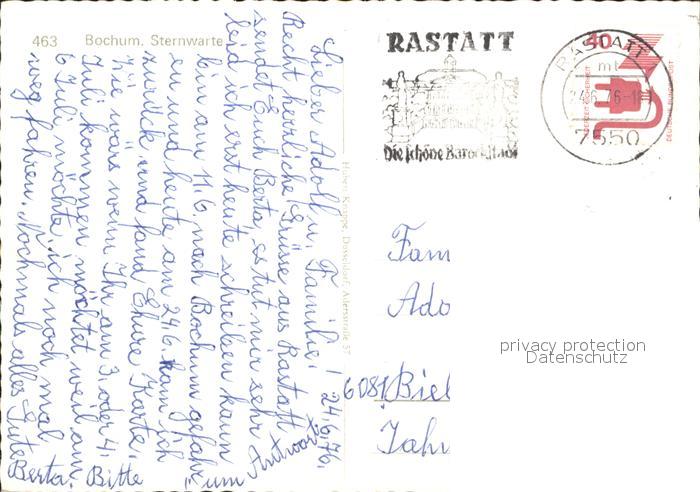 463 Bochum. Sternwarte
24.6.76.
Lieber Adolf u. Familie!
Recht herrliche Grüsse aus Rastatt
sendet Euch Berta, es tut mir sehr
leid ich erst heute schreiben kann
bin am 11.6. nach Bochum gefahr
en und heute am 24.6. kam ich
zurück und fand Eure Karte.
Wie wärs wenn Ihr am 3. oder 4.
Juli kommen möchtet weil am
6 Juli möchte ich noch mal
weg fahren. Nochmals alles Gute
Berta. Bitte um Antwort
Hubert Knippe, Düsseldorf, Adersstraße 57
RASTATT
Die schöne Barockstadt
RASTATT
mt
7550
40
Fam
Ado
6081 Biel
Jahr
privacy protection
Datenschutz